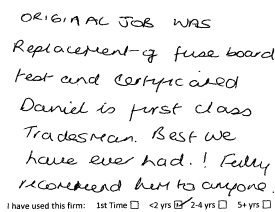 ORIGINAL JOB WAS
Replacement of fuse board
test and certificated
Daniel is first class
Tradesman. Best we
have ever had.! Fully
recommend him to anyone.
I have used this firm: 1st Time ☐ <2 yrs ☑ 2-4 yrs ☐ 5+ yrs ☐